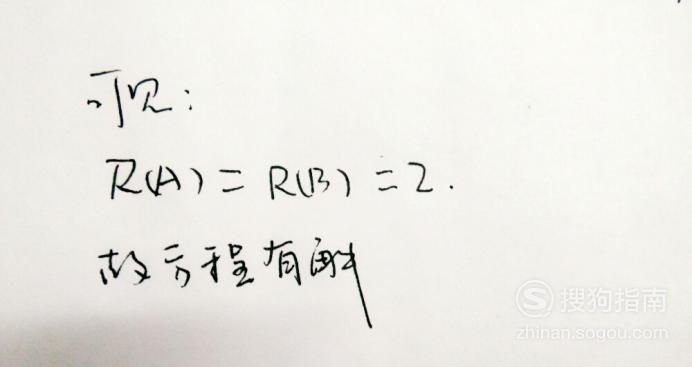 可见:
R(A)=R(B)=2.
故方程有解
搜狗指南
zhinan.sogou.com